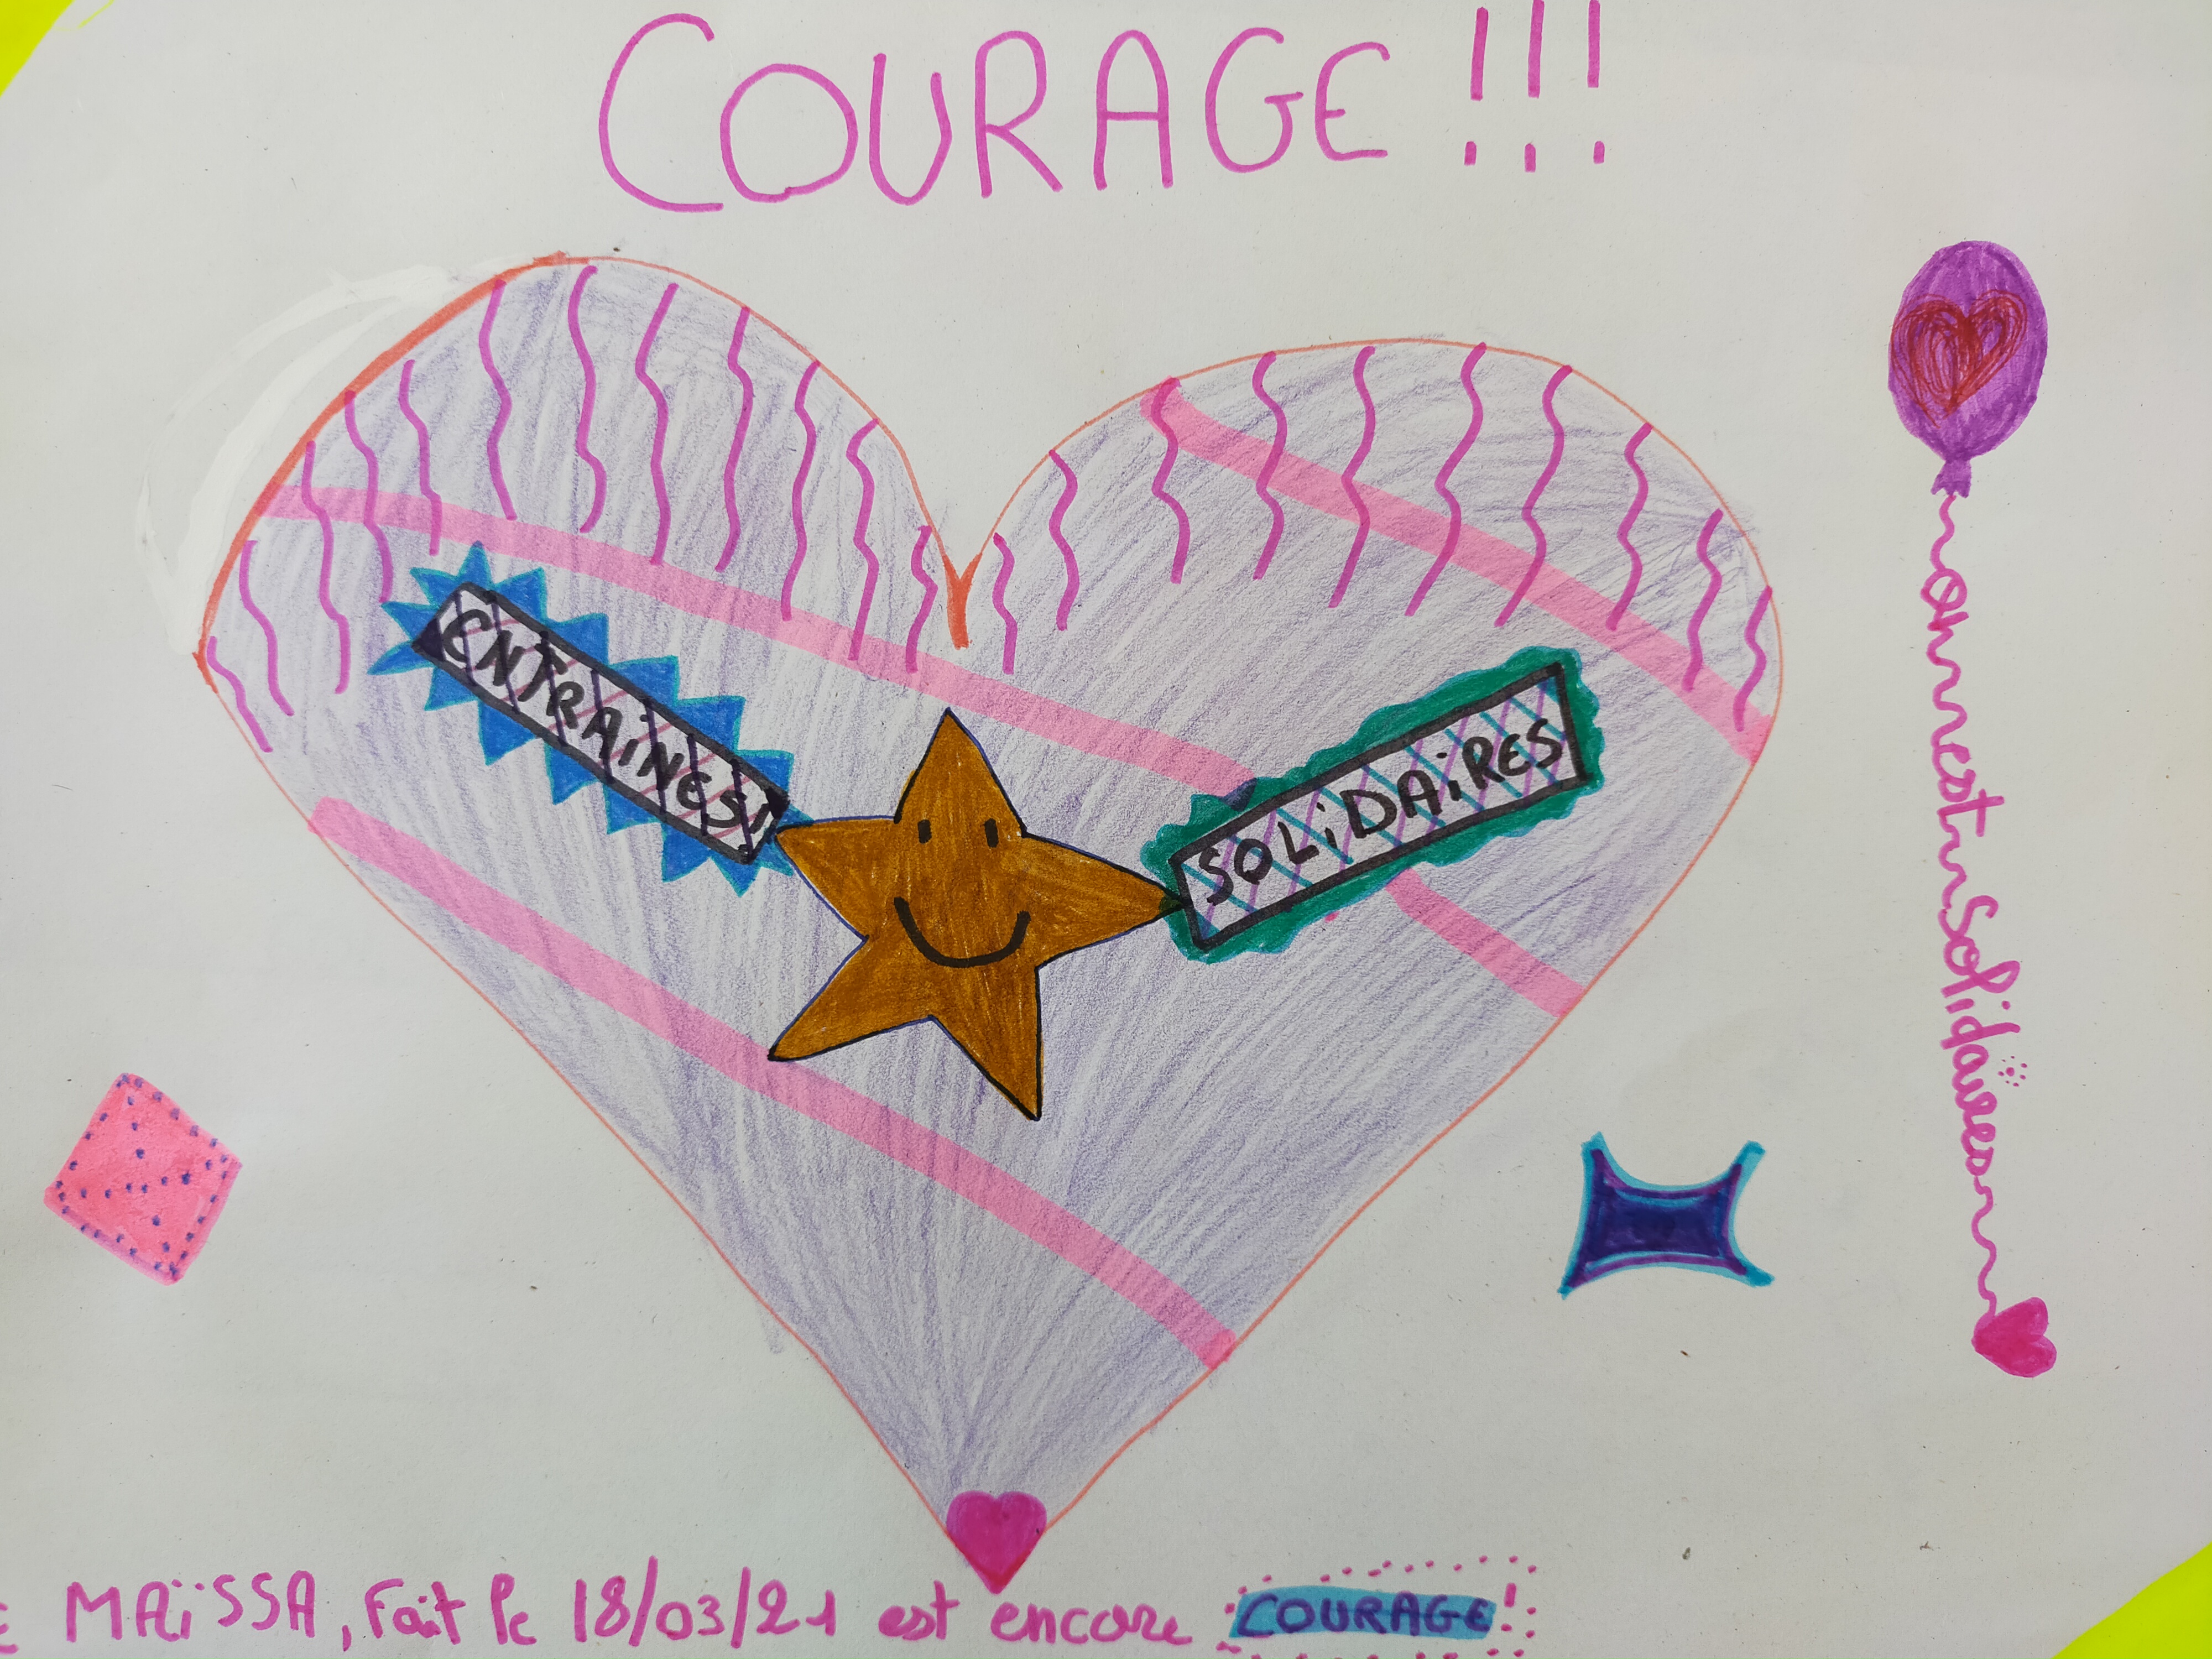 COURAGE!!!
ENTRAINES!
SOLIDAIRES
on est solidaires
MAÏSSA, Fait le 18/03/21 est encore COURAGE!